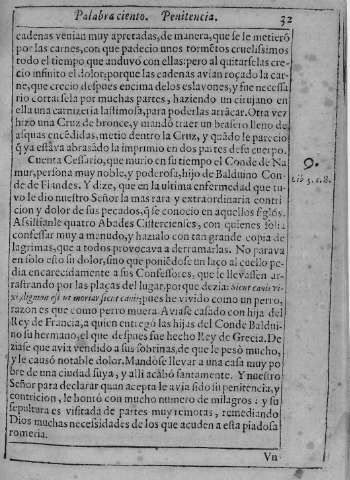 Palabra ciento. Penitencia. 32
cadenas venian muy apretadas, de manera, que se le metierõ
por las carnes, con que padecio unos tormẽtos cruelissimos
todo el tiempo que anduvo con ellas: pero al quitarselas cre-
cio infinito el dolor; porque las cadenas avian roçado la car-
ne, que crecio despues encima de los eslavones, y fue necessa-
rio cortarsela por muchas partes, haziendo un cirujano en
ella una carnizeria lastimosa, para poderlas arrãcar. Otra vez
hizo una Cruz de bronce, y mandò traer un brasero lleno de
asquas encẽdidas, metio dentro la Cruz, y quãdo le pareciò
q̃ ya estava abrasãdo la imprimio en dos partes de su cuerpo.
Cuenta Cessario, que murio en su tiempo el Conde de Na
mur, persona muy noble, y poderosa, hijo de Balduino Con-
de de Flandes. Y dize, que en la ultima enfermedad que tu-
vo le dio nuestro Señor la mas rara y extraordinaria contri
cion y dolor de sus pecados, q̃ se conocio en aquellos siglos.
Assistianle quatro Abades Cistercienses, con quienes solia
confessar muy a menudo, y hazialo con tan grande copia de
lagrimas, que a todos provocava a derramarlas. No parava
en solo esto su dolor, sino que poniẽdose un laço al cuello pe-
dia encarecidamente a sus Confessores, que le llevassen ar-
rastrando por las plaças del lugar, porque dezia: Sicut canis vi-
xi, dignum est ut moriar sicut canis: pues he vivido como un perro,
razon es que como perro muera. Aviase casado con hija del
Rey de Francia, a quien entregò las hijas del Conde Baldui-
no su hermano, el que despues fue hecho Rey de Grecia. De
ziase que avia vendido a sus sobrinas, de que le pesò mucho,
y le causò notable dolor. Mandòse llevar a una casa muy po
bre de una ciudad suya, y alli acabò santamente. Y nuestro
Señor para declarar quan acepta le avia sido su penitencia, y
contricion, le honrò con mucho numero de milagros: y su
sepultura es visitada de partes muy remotas, remediando
Dios muchas necessidades de los que acuden a esta piadosa
romeria.
9.
Lib. 5. c. 8.
Vn